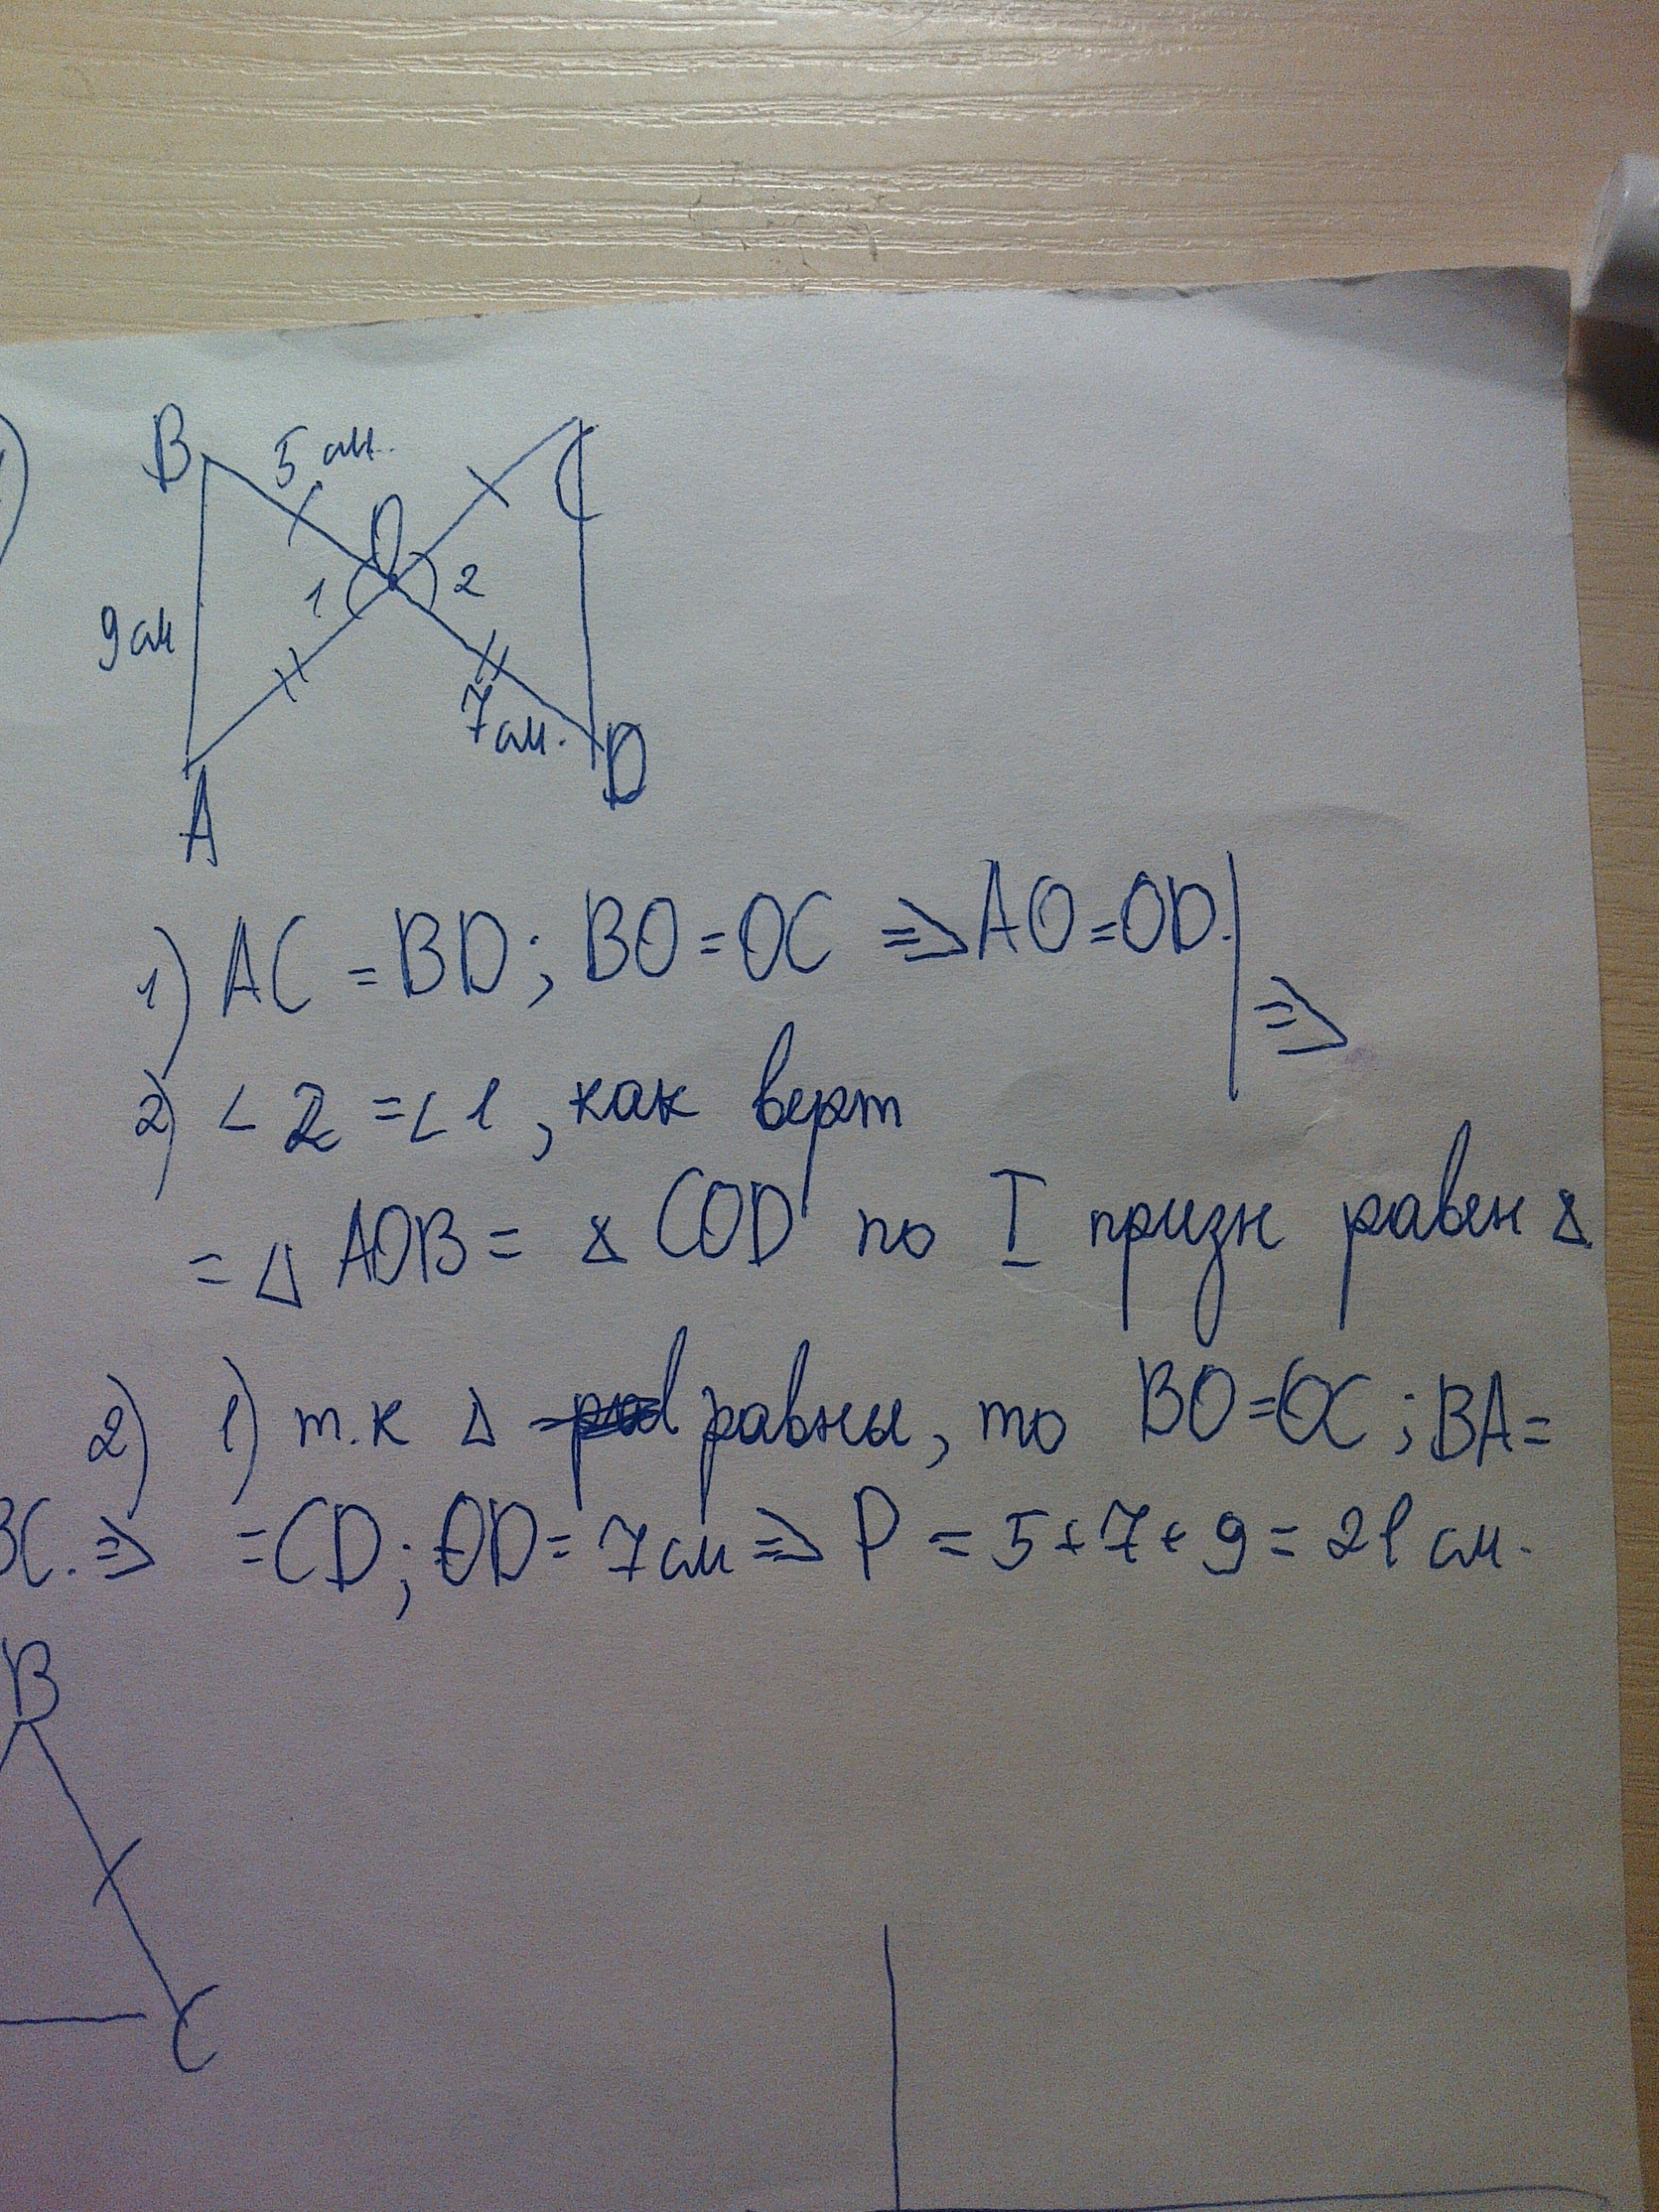 B 5 см. C
O
1 2
9 см
7 см.
A D
1) AC = BD; BO = OC ⇒ AO = OD. | ⇒
2) ∠2 = ∠1, как верт
= △ AOB = △ COD по I призн равен △.
2) 1) т.к △ равны, то BO = OC; BA =
BC. ⇒ = CD; OD = 7 см ⇒ P = 5 + 7 + 9 = 21 см.
B
C